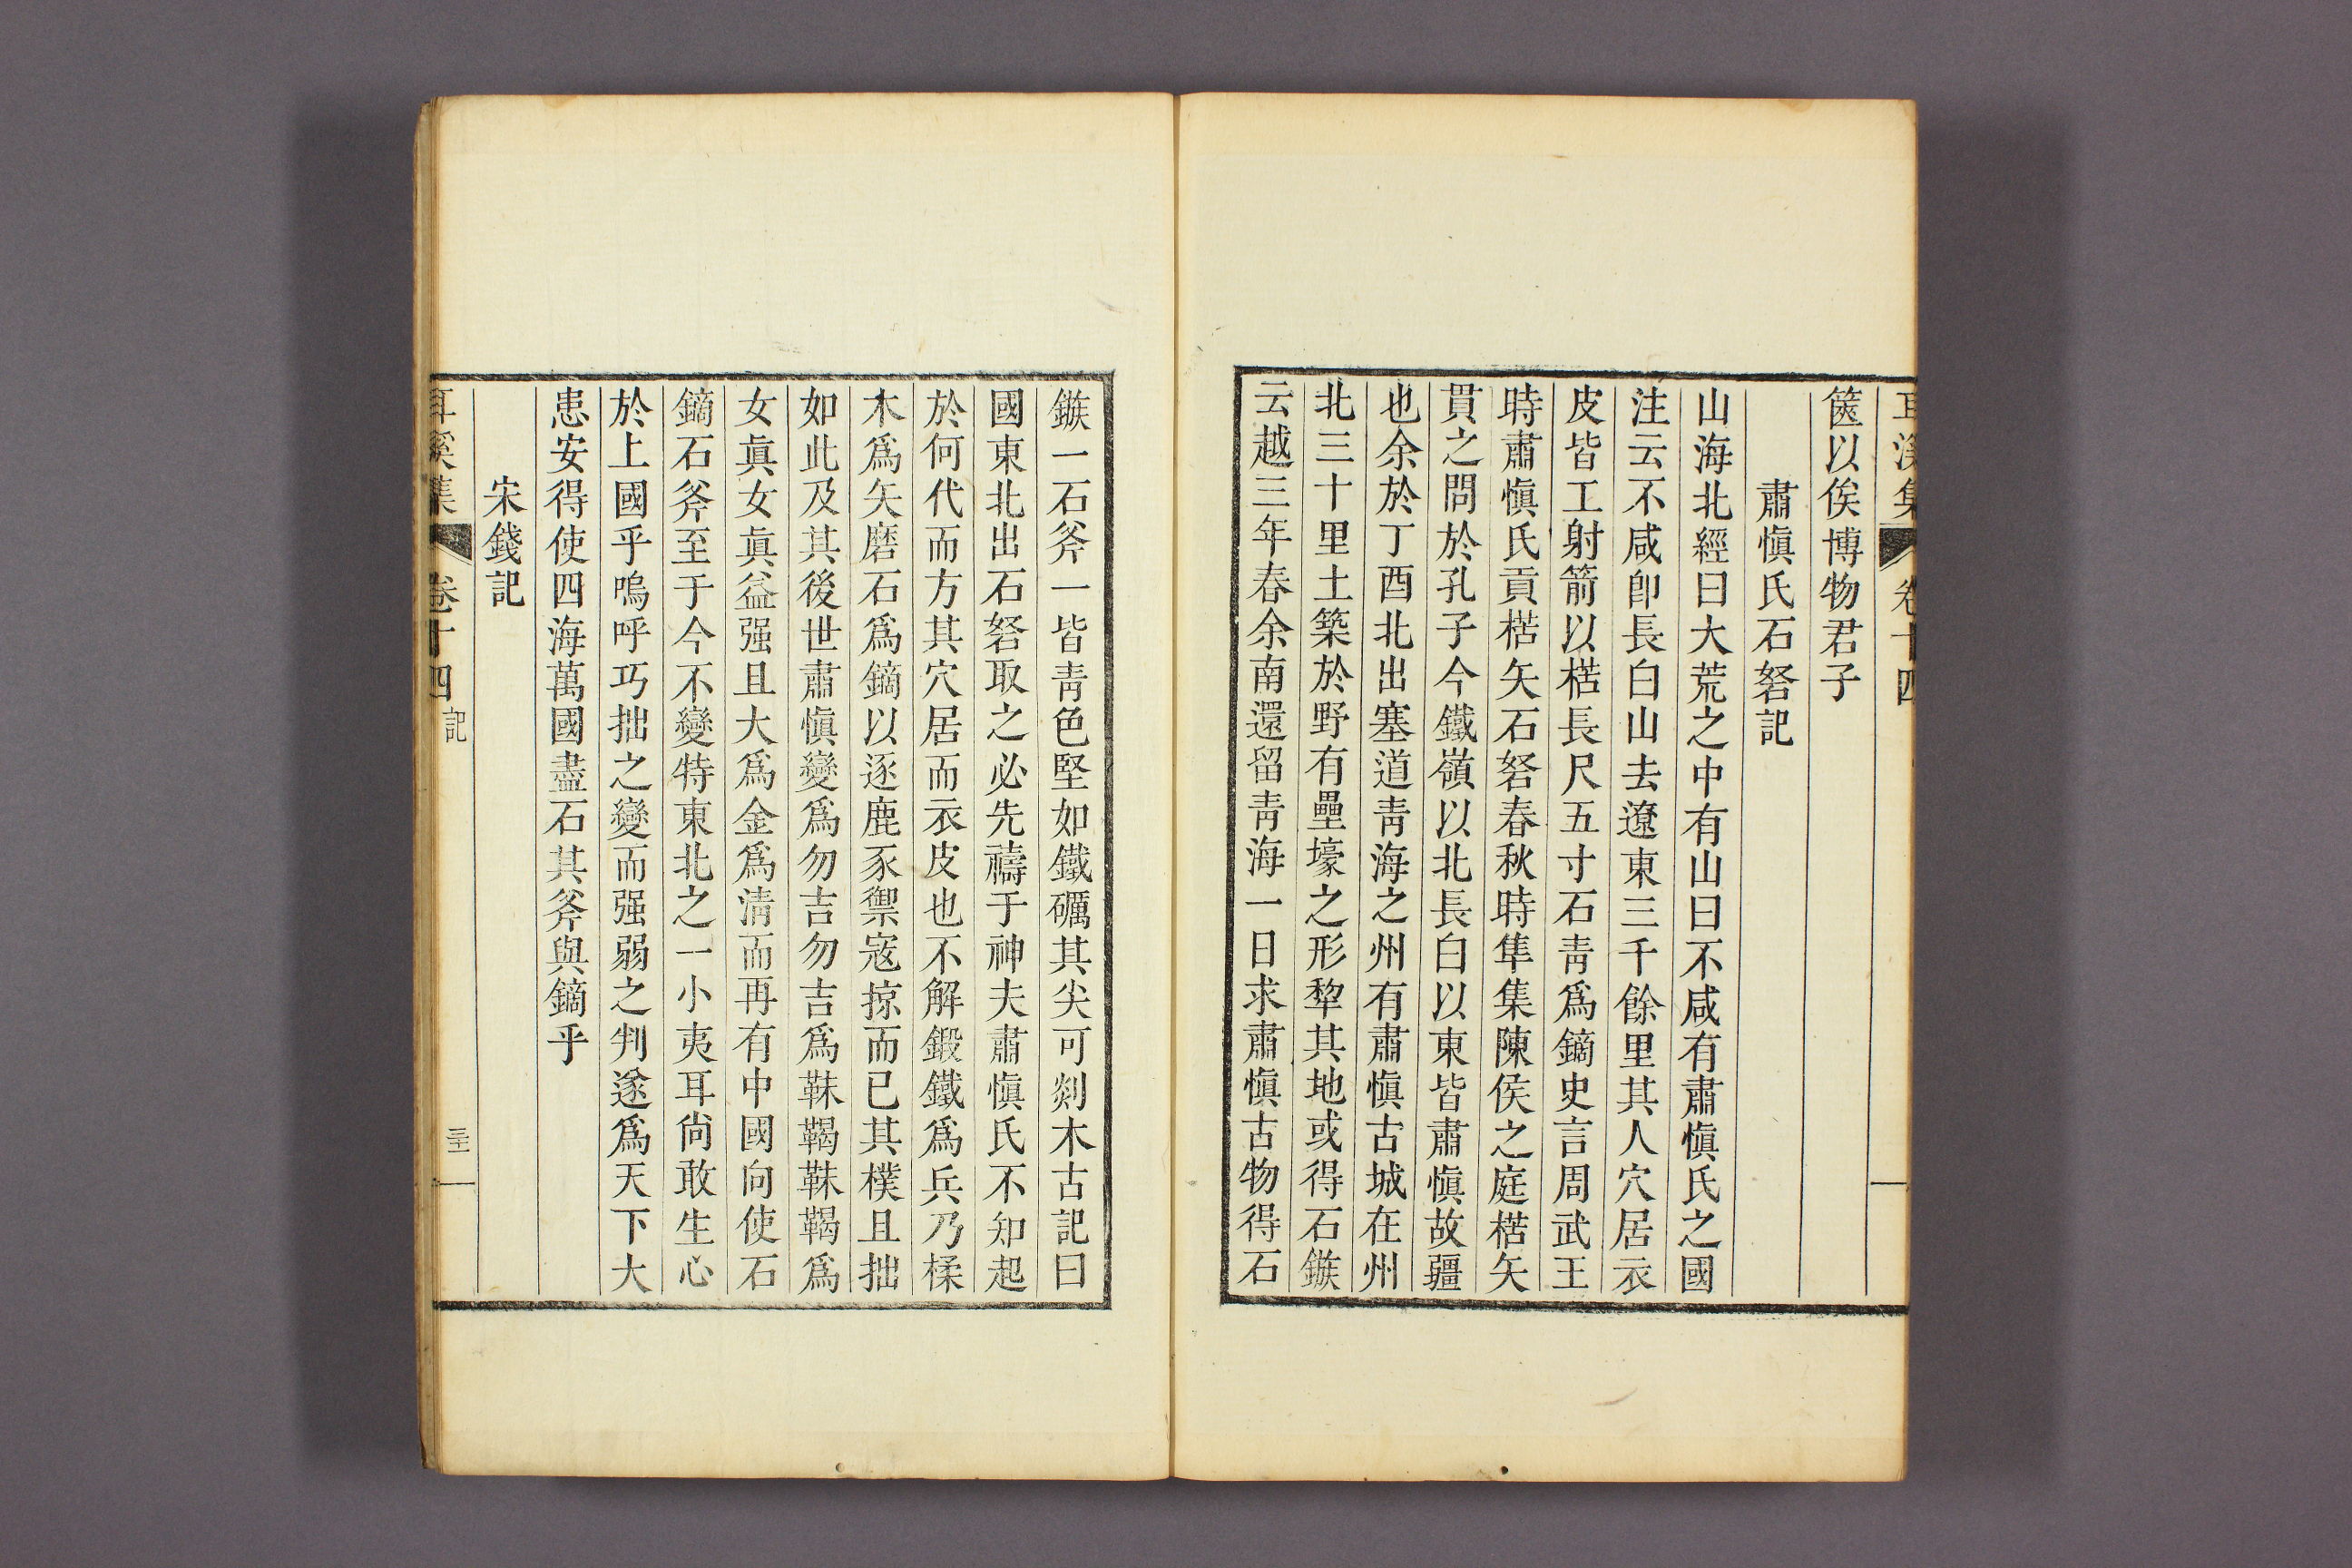 耳溪集 卷十四
篋以俟博物君子
肅愼氏石砮記
山海北經曰大荒之中有山曰不咸有肅愼氏之國
注云不咸卽長白山去遼東三千餘里其人穴居衣
皮皆工射箭以楛長尺五寸石靑爲鏑史言周武王
時肅愼氏貢楛矢石砮春秋時隼集陳侯之庭楛矢
貫之問於孔子今鐵嶺以北長白以東皆肅愼故疆
也余於丁酉北出塞道靑海之州有肅愼古城在州
北三十里土築於野有壘壕之形犂其地或得石鏃
云越三年春余南還留靑海一日求肅愼古物得石
鏃一石斧一皆靑色堅如鐵礪其尖可剡木古記曰
國東北出石砮取之必先禱于神夫肅愼氏不知起
於何代而方其穴居而衣皮也不解鍛鐵爲兵乃楺
木爲矢磨石爲鏑以逐鹿豕禦寇掠而已其樸且拙
如此及其後世肅愼變爲勿吉勿吉爲靺鞨靺鞨爲
女眞女眞益强且大爲金爲淸而再有中國向使石
鏑石斧至于今不變特東北之一小夷耳尙敢生心
於上國乎嗚呼巧拙之變而强弱之判遂爲天下大
患安得使四海萬國盡石其斧與鏑乎
宋錢記
耳溪集 卷十四 記